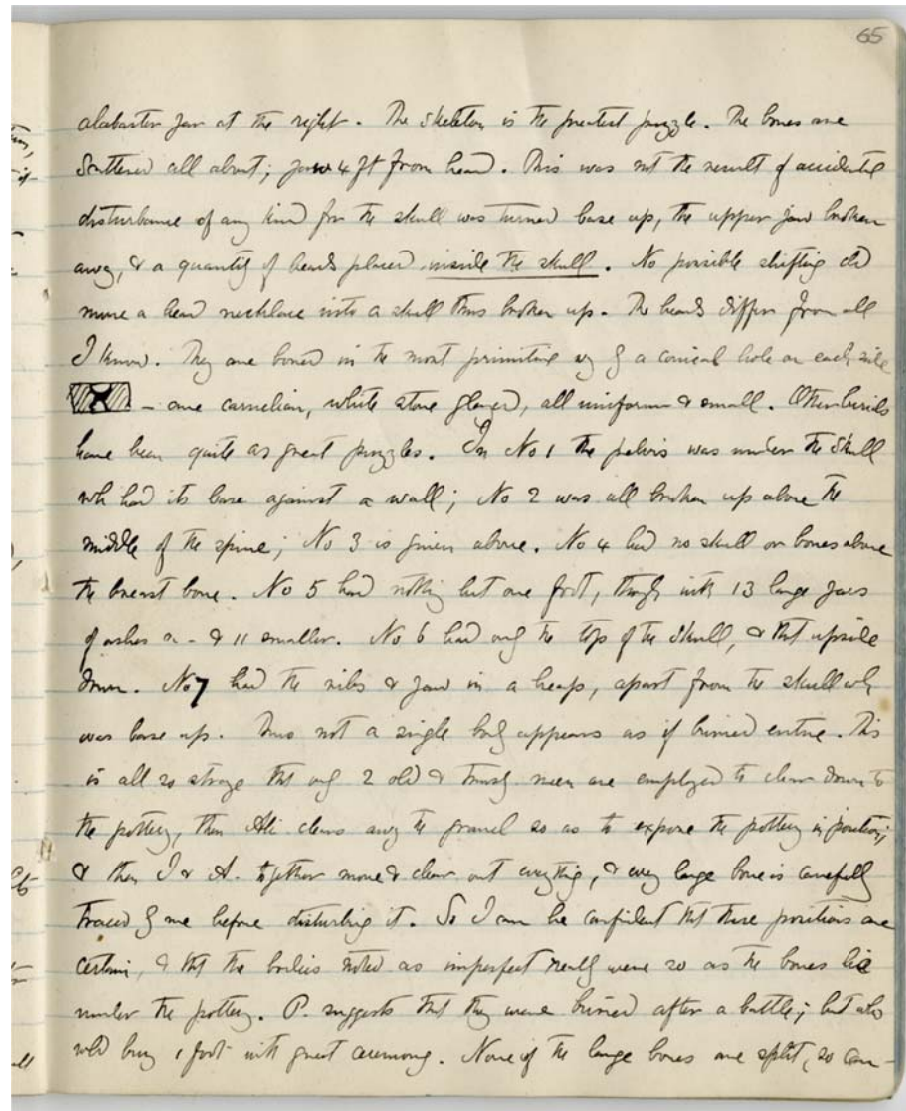 65
alabaster jar at the right. The skeleton is the greatest puzzle. The bones are
scattered all about; jaw 4 ft from head. This was not the result of accidental
disturbance of any kind for the skull was turned base up, the upper jaw broken
away, & a quantity of beads placed inside the skull. No possible shifting cd
move a bead necklace into a skull thus broken up. The beads differ from all
I know. They are bored in the most primitive way by a conical hole on each side
– are carnelian, white stone glazed, all uniform & small. Other burials
have been quite as great puzzles. In No 1 the pelvis was under the skull
wh had its base against a wall; No 2 was all broken up above the
middle of the spine; No 3 is given above. No 4 had no skull or bones above
the breast bone. No 5 had nothing but one foot, though with 13 large jars
of ashes & 11 smaller. No 6 had only the top of the skull, & that upside
down. No 7 had the ribs & jaw in a heap, apart from the skull wh
was base up. Thus not a single body appears as if buried entire. This
is all so strange that only 2 old & trusty men are employed to clear down to
the pottery, then Ali clears away the gravel so as to expose the pottery in position;
& then I & A. together move & clear out everything, & every large bone is carefully
traced by me before disturbing it. So I can be confident that these positions are
certain, & that the bodies noted as imperfect really were so as the bones lie
under the pottery. P. suggests that they were buried after a battle; but who
wld bury 1 foot with great ceremony. None of the large bones are split, so can-